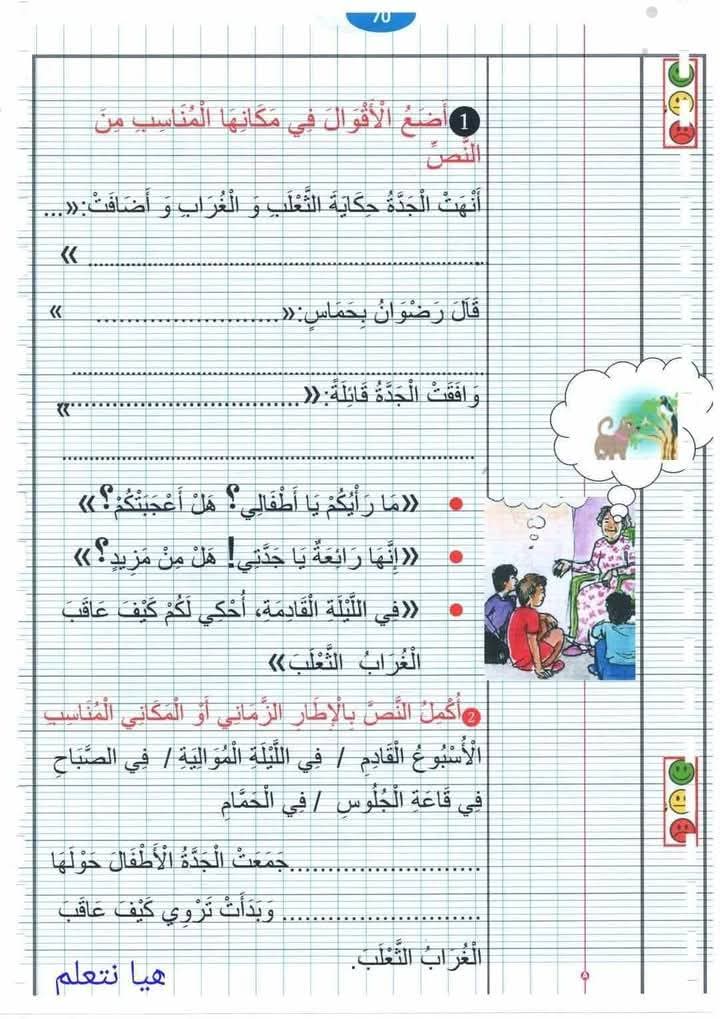 70
1 أَضَعُ الْأَقْوَالَ فِي مَكَانِهَا الْمُنَاسِبِ مِنَ
النَّصِّ
أَنْهَتْ الْجَدَّةُ حِكَايَةَ الثَّعْلَبِ وَ الْغُرَابِ وَ أَضَافَتْ:«...
.......................................................... »
قَالَ رَضْوَانُ بِحَمَاسٍ:«........................... »
..........................................................
وَافَقَتْ الْجَدَّةُ قَائِلَةً:«................................... »
..........................................................
• «مَا رَأْيُكُمْ يَا أَطْفَالِي؟ هَلْ أَعْجَبَتْكُمْ؟»
• «إِنَّهَا رَائِعَةٌ يَا جَدَّتِي! هَلْ مِنْ مَزِيدٍ؟»
• «فِي اللَّيْلَةِ الْقَادِمَةِ، أُحْكِي لَكُمْ كَيْفَ عَاقَبَ
الْغُرَابُ الثَّعْلَبَ»
2 أُكْمِلُ النَّصَّ بِالْإِطَارِ الزَّمَانِي أَوْ الْمَكَانِي الْمُنَاسِبِ
الْأُسْبُوعُ الْقَادِمِ / فِي اللَّيْلَةِ الْمُوَالِيَةِ / فِي الصَّبَاحِ
فِي قَاعَةِ الْجُلُوسِ / فِي الْحَمَّامِ
............................جَمَعَتْ الْجَدَّةُ الْأَطْفَالَ حَوْلَهَا
............................. وَبَدَأَتْ تَرْوِي كَيْفَ عَاقَبَ
الْغُرَابُ الثَّعْلَبَ.
هيا نتعلم